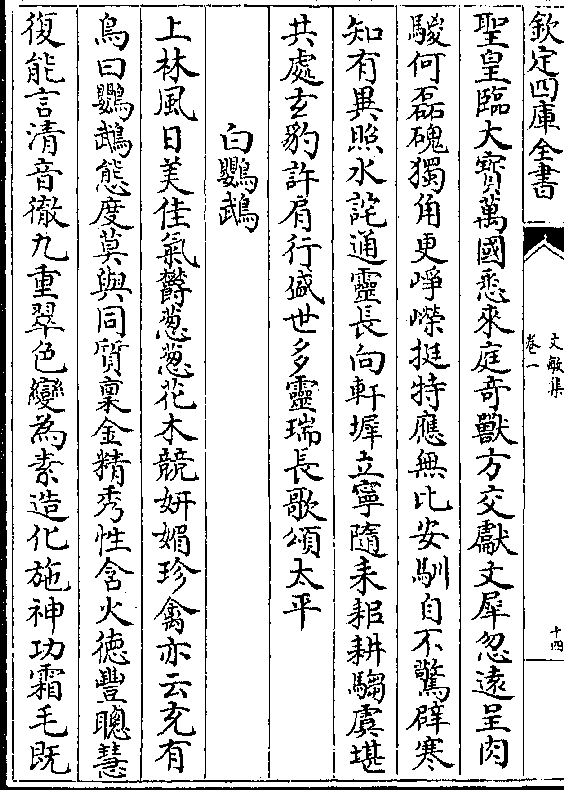 欽定四庫全書
文敏集
卷一
十四
聖皇臨大寶萬國悉來庭奇獸方交獻文犀忽遠呈肉
駿何磊磈獨角更崢嶸挺特應無比安馴自不驚辟寒
知有異照水詫通靈長向軒墀立寧隨耒耜耕騶虞堪
共處玄豹許肩行盛世多靈瑞長歌頌太平
白鸚鵡
上林風日美佳氣鬱葱葱花木競妍媚珍禽亦云充有
鳥曰鸚鵡態度莫與同質稟金精秀性含火德豐聰慧
復能言清音徹九重翠色變為素造化施神功霜毛既